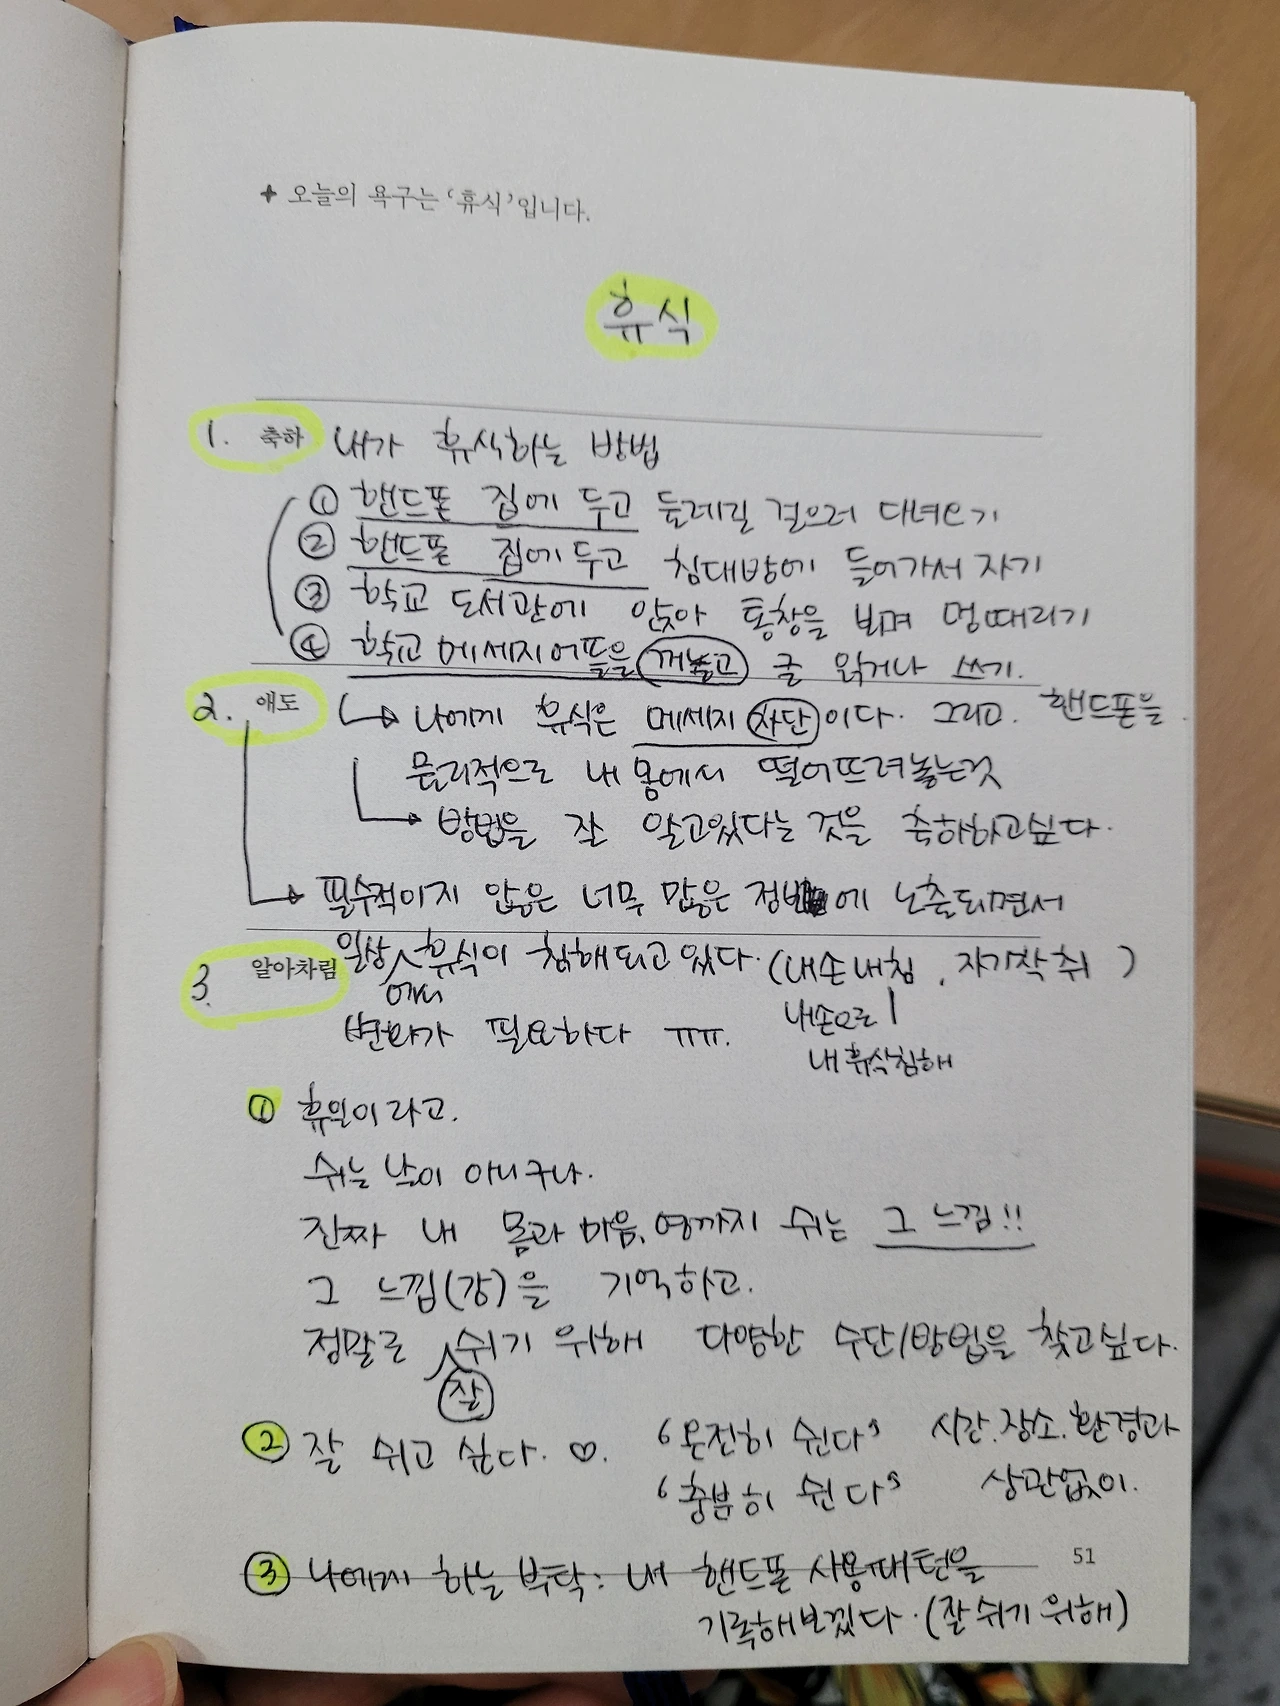 ✦ 오늘의 욕구는 '휴식'입니다.
휴식
1. 축하 내가 휴식하는 방법
① 핸드폰 집에 두고 둘레길 걸으러 다녀오기
② 핸드폰 집에 두고 침대방에 들어가서 자기
③ 학교 도서관에 앉아 통창을 보며 멍때리기
④ 학교 메세지어플을 꺼놓고 글 읽거나 쓰기.
2. 애도 나에게 휴식은 메세지 차단이다. 그리고. 핸드폰을
물리적으로 내 몸에서 떨어뜨려놓는것
방법을 잘 알고있다는 것을 축하하고싶다.
필수적이지 않은 너무 많은 정보에 노출되면서
3. 알아차림 일상에서 휴식이 침해되고 있다. (내손내침, 자기착취)
변화가 필요하다 ㅠㅠ. 내손으로
내휴식침해
① 휴일이라고.
쉬는 날이 아니구나.
진짜 내 몸과 마음, 영까지 쉬는 그 느낌!!
그 느낌(감)을 기억하고.
정말로 잘 쉬기 위해 다양한 수단/방법을 찾고싶다.
② 잘 쉬고 싶다. ♡. '온전히 쉰다' 시간.장소.환경과
'충분히 쉰다' 상관없이.
③ 나에게 하는 부탁: 내 핸드폰 사용패턴을
51
기록해보겠다. (잘쉬기 위해)